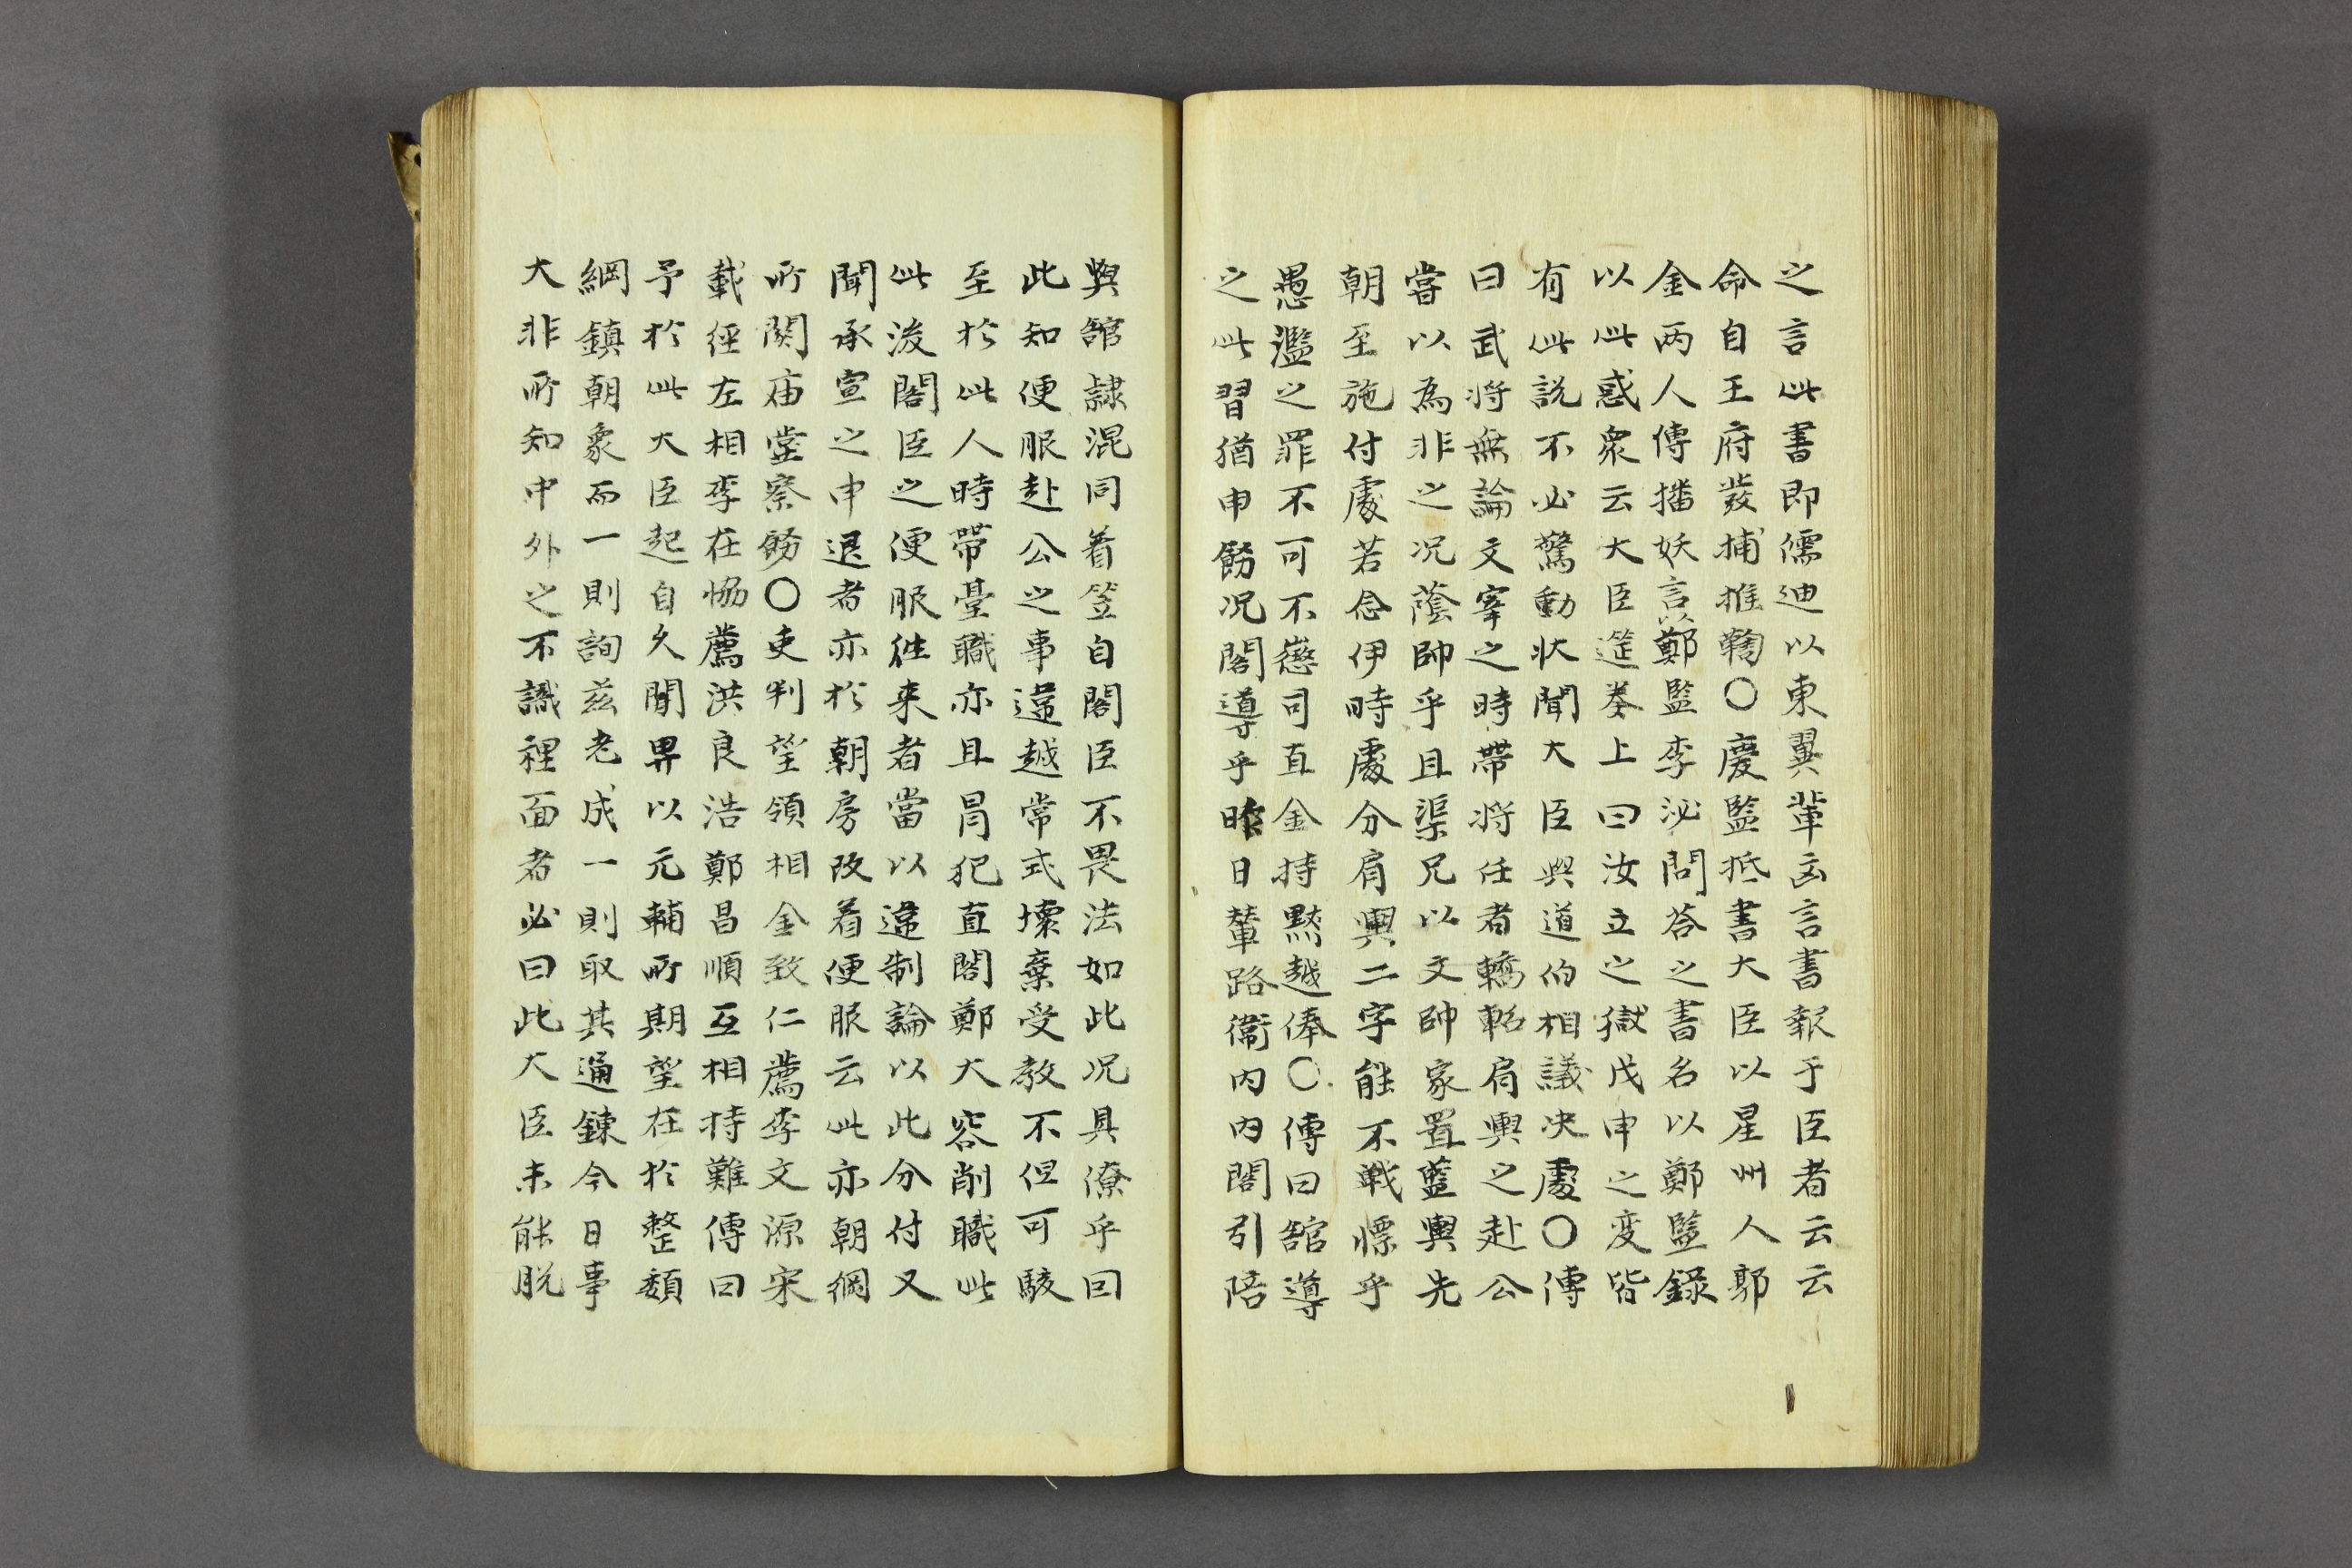 之言此書即儒迪以東翼輩凶言書報于臣者云云
命自王府發捕推鞫〇慶監抵書大臣以星州人郭
金兩人傳播妖言以鄭監李泌問答之書名以鄭監錄
以此惑衆云大臣筵奏上曰汝立之獄戊申之変皆
有此說不必驚動狀聞大臣與道伯相議決處〇傳
曰武將無論文宰之時帶將任者轎軺肩輿之赴公
嘗以為非之况蔭帥乎且渠兄以文帥家置藍輿先
朝至施付處若念伊時處分肩輿二字能不戰慄乎
愚濫之罪不可不懲司直金持默越俸〇傳曰舘導
之此習猶申飭况閣導乎昨日輦路衛內內閣引陪
與舘隷混同着笠自閣臣不畏法如此况具僚乎囙
此知便服赴公之事違越常式壞棄受教不但可駭
至於此人時帶臺職亦且冐犯直閣鄭大容削職此
此後閣臣之便服徃来者當以違制論以此分付又
聞承宣之申退者亦於朝房改着便服云此亦朝綱
所関庙堂察飭〇吏判望領相金致仁薦李文源宋
載經左相李在恊薦洪良浩鄭昌順互相持難傳曰
予於此大臣起自久閒畀以元輔所期望在於整頹
綱鎮朝象而一則詢玆老成一則取其通鍊今日事
大非所知中外之不識裡面者必曰此大臣未能脱